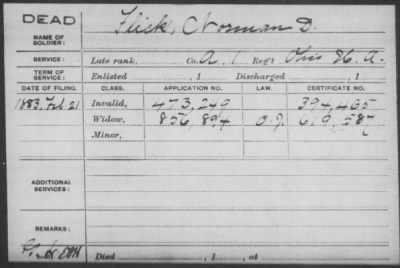 DEAD
NAME OF SOLDIER: Flick, Norman D.
SERVICE: Late rank, Co. A, 1 Reg't Ohio H. A.
TERM OF SERVICE: Enlisted , 1 Discharged , 1
DATE OF FILING. CLASS. APPLICATION NO. LAW. CERTIFICATE NO.
1883, Feb 21 Invalid, 473,249 394,465
Widow, 856,894 O.J. 619,587
Minor,
ADDITIONAL SERVICES:
REMARKS:
Died , 1 , at